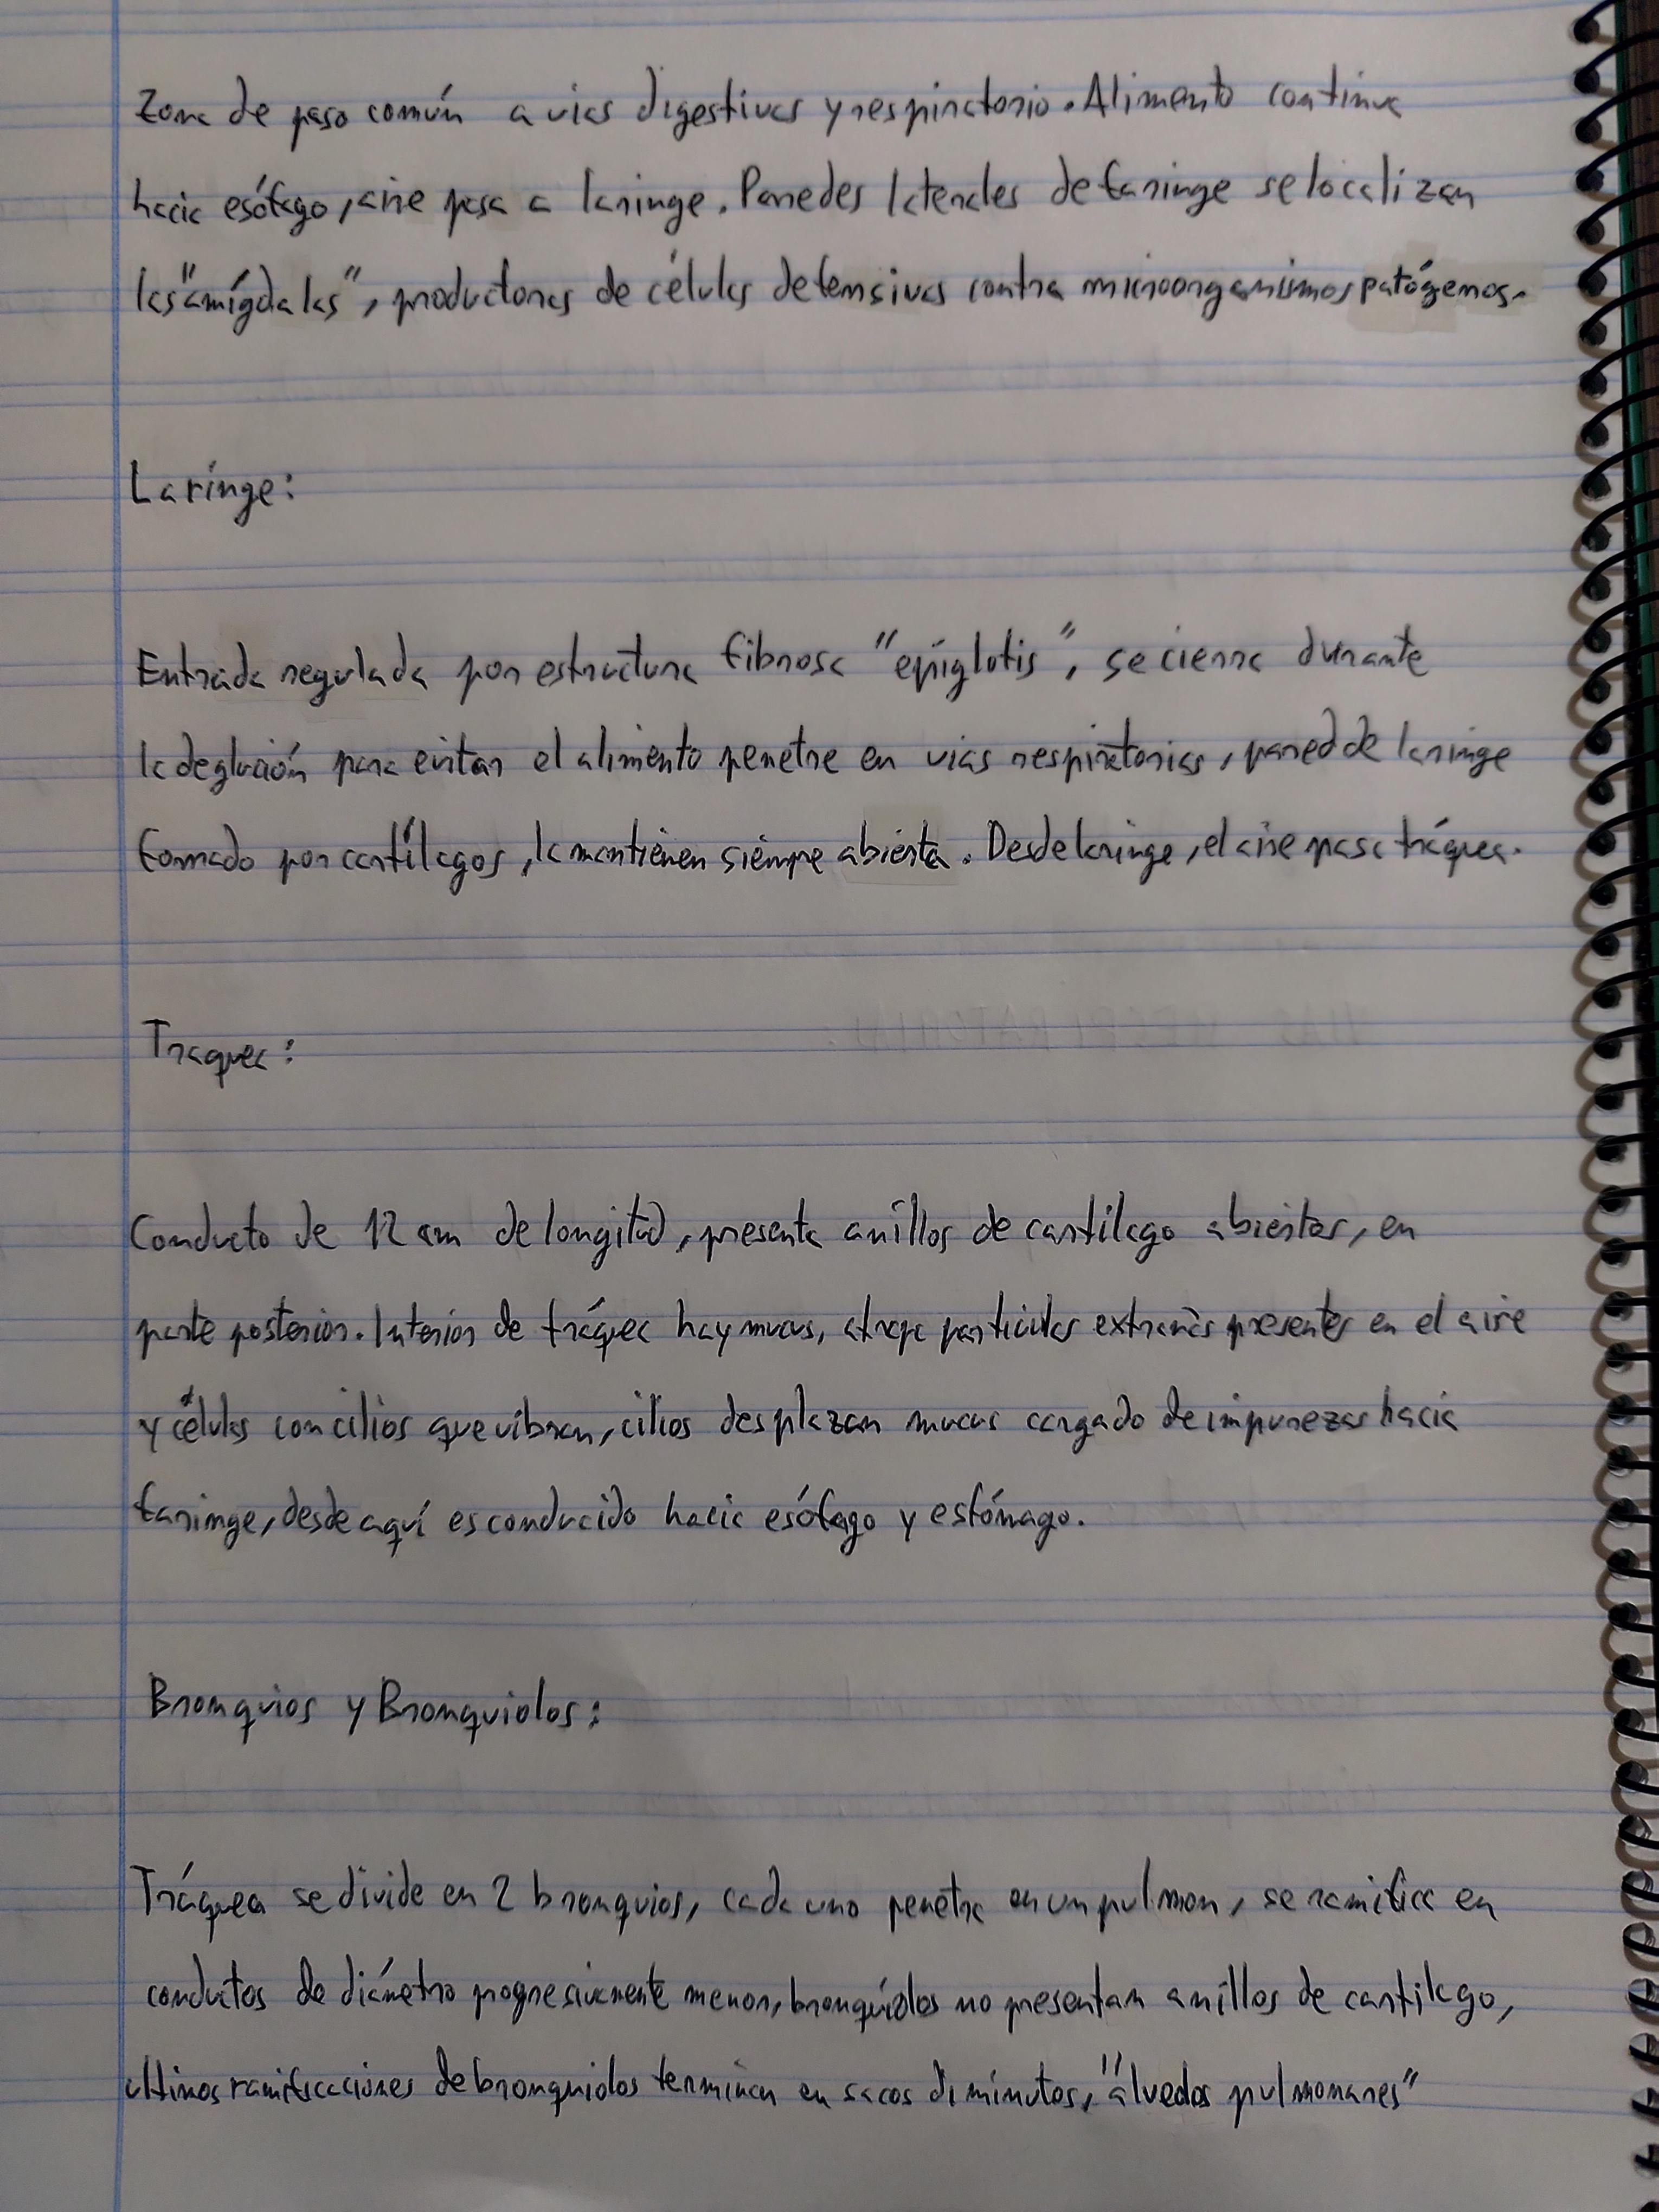 Zona de paso común a vias digestivas y respiratorio. Alimento continua
hacia esófago, aire pasa a laringe. Paredes laterales de faringe se localizan
las "amígdalas", productoras de células defensivas contra microorganismos patógenos.
Laringe:
Entrada regulada por estructura fibrosa "epíglotis", se cierra durante
la deglución para evitar el alimento penetre en vias respiratorias, pared de laringe
formado por cartílagos, la mantienen siempre abierta. Desde laringe, el aire pasa tráquea.
Traquea:
Conducto de 12 cm de longitud, presenta anillos de cartílago abiertos, en
parte posterior. Interior de tráquea hay mucus, atrapa particulas extrañas presentes en el aire
y células con cilios que vibran, cilios desplazan mucus cargado de impurezas hacia
faringe, desde aquí es conducido hacia esófago y estómago.
Bronquios y Bronquiolos:
Tráquea se divide en 2 bronquios, cada uno penetra en un pulmon, se ramifica en
conductos de diámetro progresivamente menor, bronquiolos no presentan anillos de cartilago,
ultimas ramificaciones de bronquiolos terminan en sacos diminutos, "álveolos pulmonares"